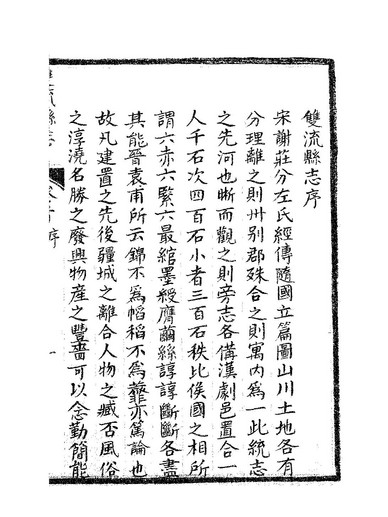 雙流縣志序
宋謝莊分左氏經傳隨國立篇圖山川土地各有
分理離之則卅別郡殊合之則寓內為一此統志
之先河也晰而觀之則旁志各備漢劇邑置合一
人千石次四百石小者三百石秩比侯國之相所
謂六亦六緊六最綰墨綬膺繭絲諄諄斷斷各盡
其能晉袁甫所云錦不為幍稻不為虀亦篤論也
故凡建置之先後疆域之離合人物之臧否風俗
之淳澆名勝之廢興物産之豐嗇可以念勤簡能
雙流縣志
序
一